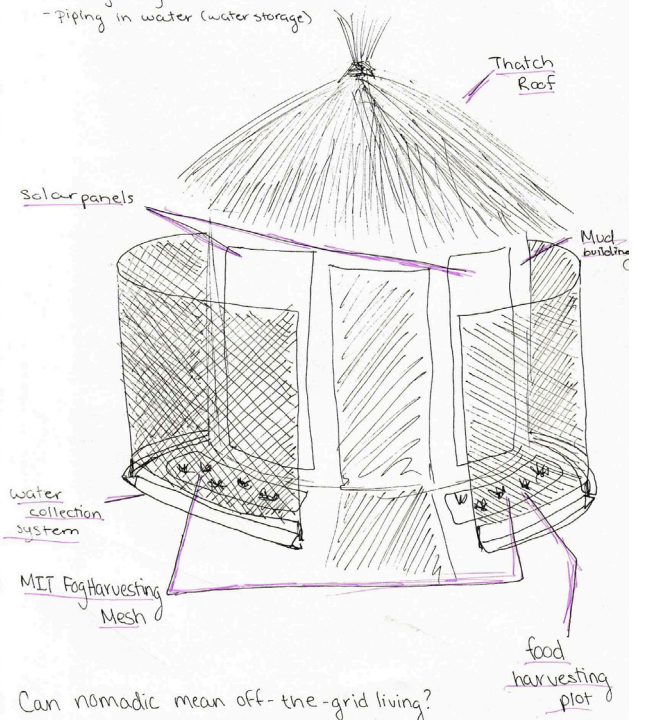 - Piping in water (water storage)
Thatch
Roof
Solar panels
Mud
building
water
collection
system
MIT FogHarvesting
Mesh
food
harvesting
plot
Can nomadic mean off-the-grid living?